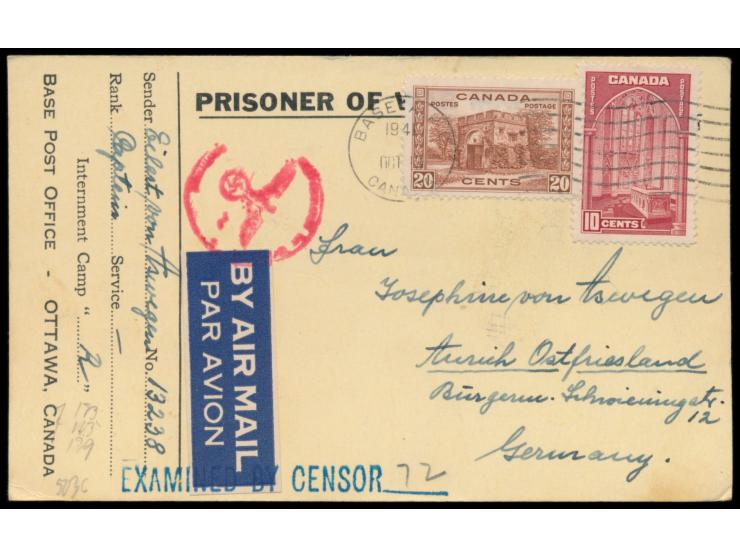 PRISONER OF
BASE
194
OCT
CANA
CANADA
POSTES POSTAGE
20 CENTS 20
CANADA
POSTES POSTAGE
10 CENTS
Sender Eilert von Aswegen No. 13238
Rank Captain Service —
Internment Camp "R"
BASE POST OFFICE - OTTAWA, CANADA
BY AIR MAIL
PAR AVION
Frau
Josephine von Aswegen
Aurich Ostfriesland
Bürgerm. Schwieningstr.
12
Germany.
EXAMINED BY CENSOR 72